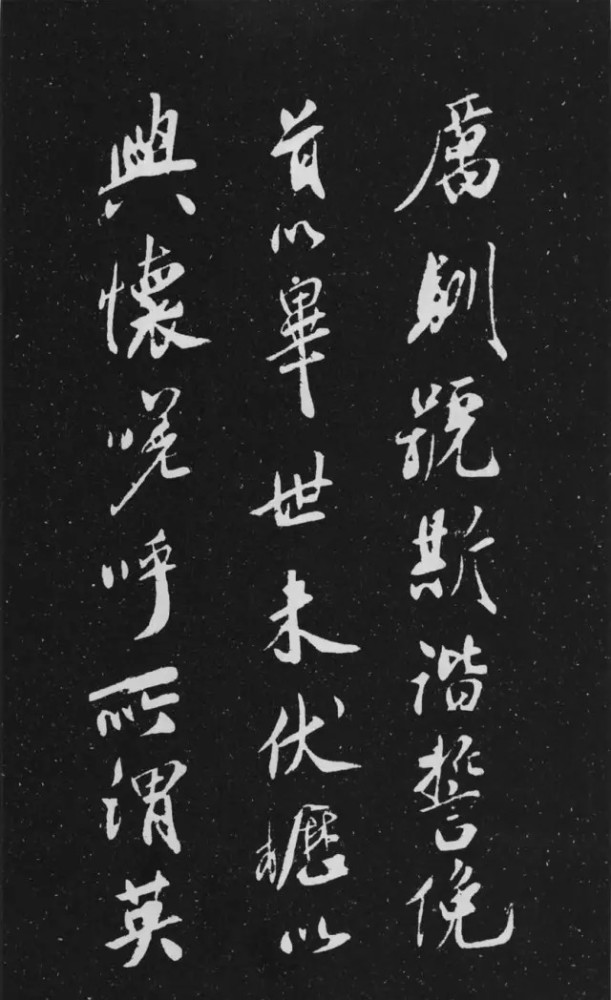 厲馴號斯諧誓俛
首以畢世未伏櫪以
興懷嗟呼所謂英